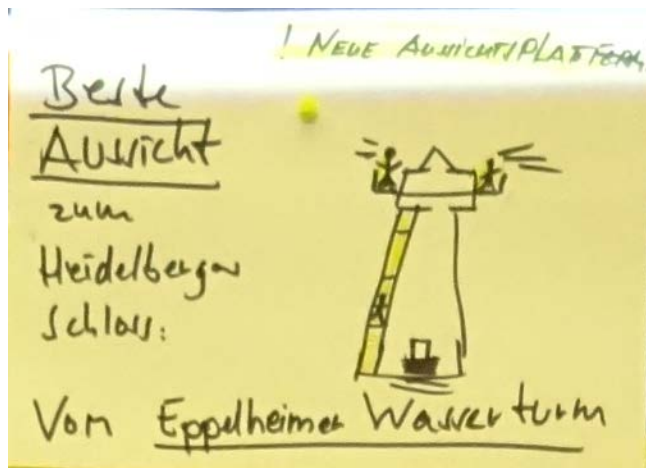 ! NEUE AUSSICHTSPLATTFORM
Beste
Aussicht
zum
Heidelberger
Schloss:
Vom Eppelheimer Wasserturm